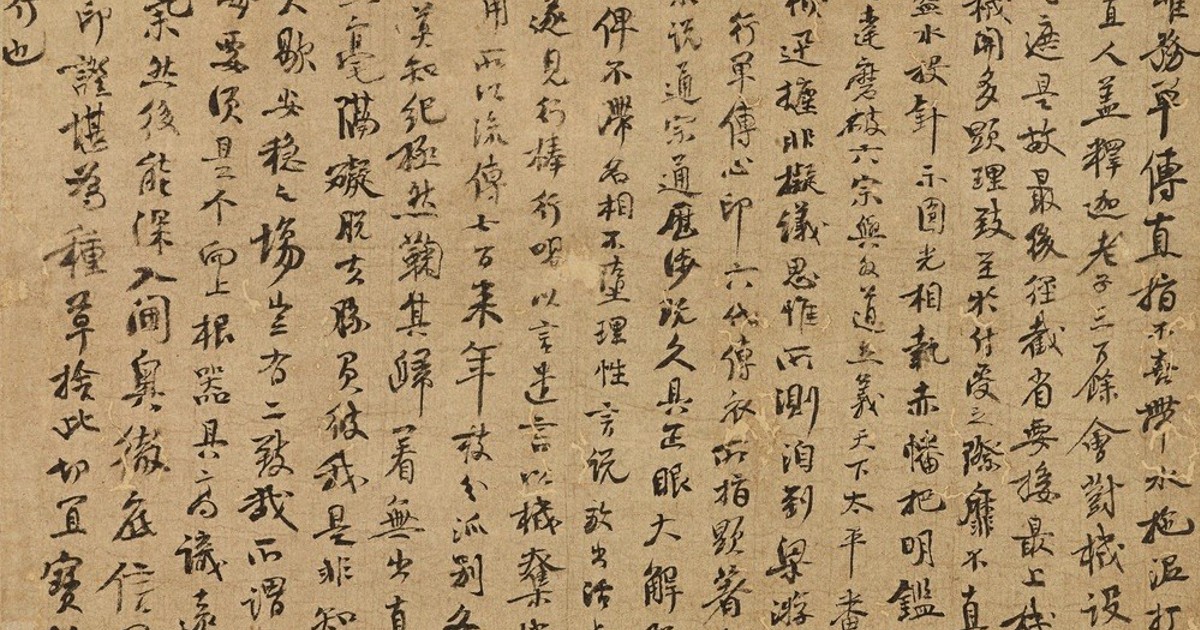 唯務單傳直指不喜帶水拖泥打
置人蓋釋迦老子三百餘會對機設
遮是故最後徑截省要接最上機
機關多顯理致至於付受之際靡不直
盋水投針示圓光相執赤幡把明鑑
達磨破六宗與外道立義天下太平番
機迅捷非擬議思惟所測洎到梁游
行單傳心印六代傳衣所指顯著
示說通宗通歷涉既久具正眼大解脫
俾不滯名相不墮理性言說放出活
遂見行棒行喝以言遣言以機奪機
用所以流傳七百來年枝分派別各
莫知紀極然鞠其歸着無出直
毫隔礙脫去勝負彼我是非知
大歇安穩之場豈有二致哉所謂
海要須是个向上根器具高識遠
氣然後能深入閫奧徹底信
印證堪為種草捨此切宜寶
行也